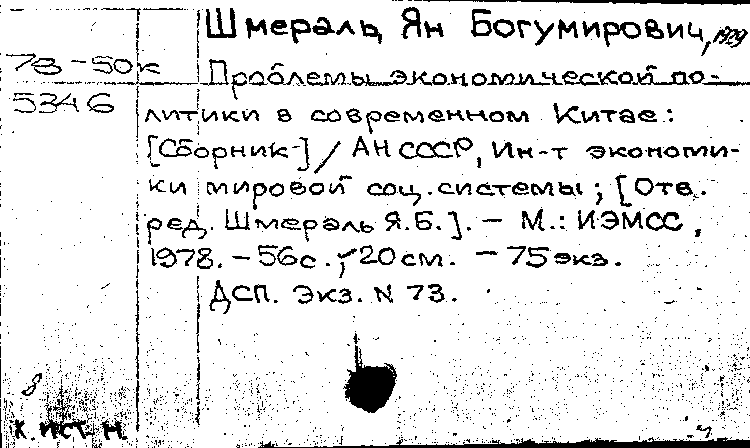 Шмераль Ян Богумирович, 1929
78-50к
Проблемы экономической по-
5346
литики в современном Китае:
[Сборник] / АН СССР, Ин-т экономи-
ки мировой соц. системы; [Отв.
ред. Шмераль Я.Б.]. - М.: ИЭМСС,
1978. - 56с.; 20см. - 75экз.
ДСП. Экз. N 73.
8
К. ИСТ. Н.